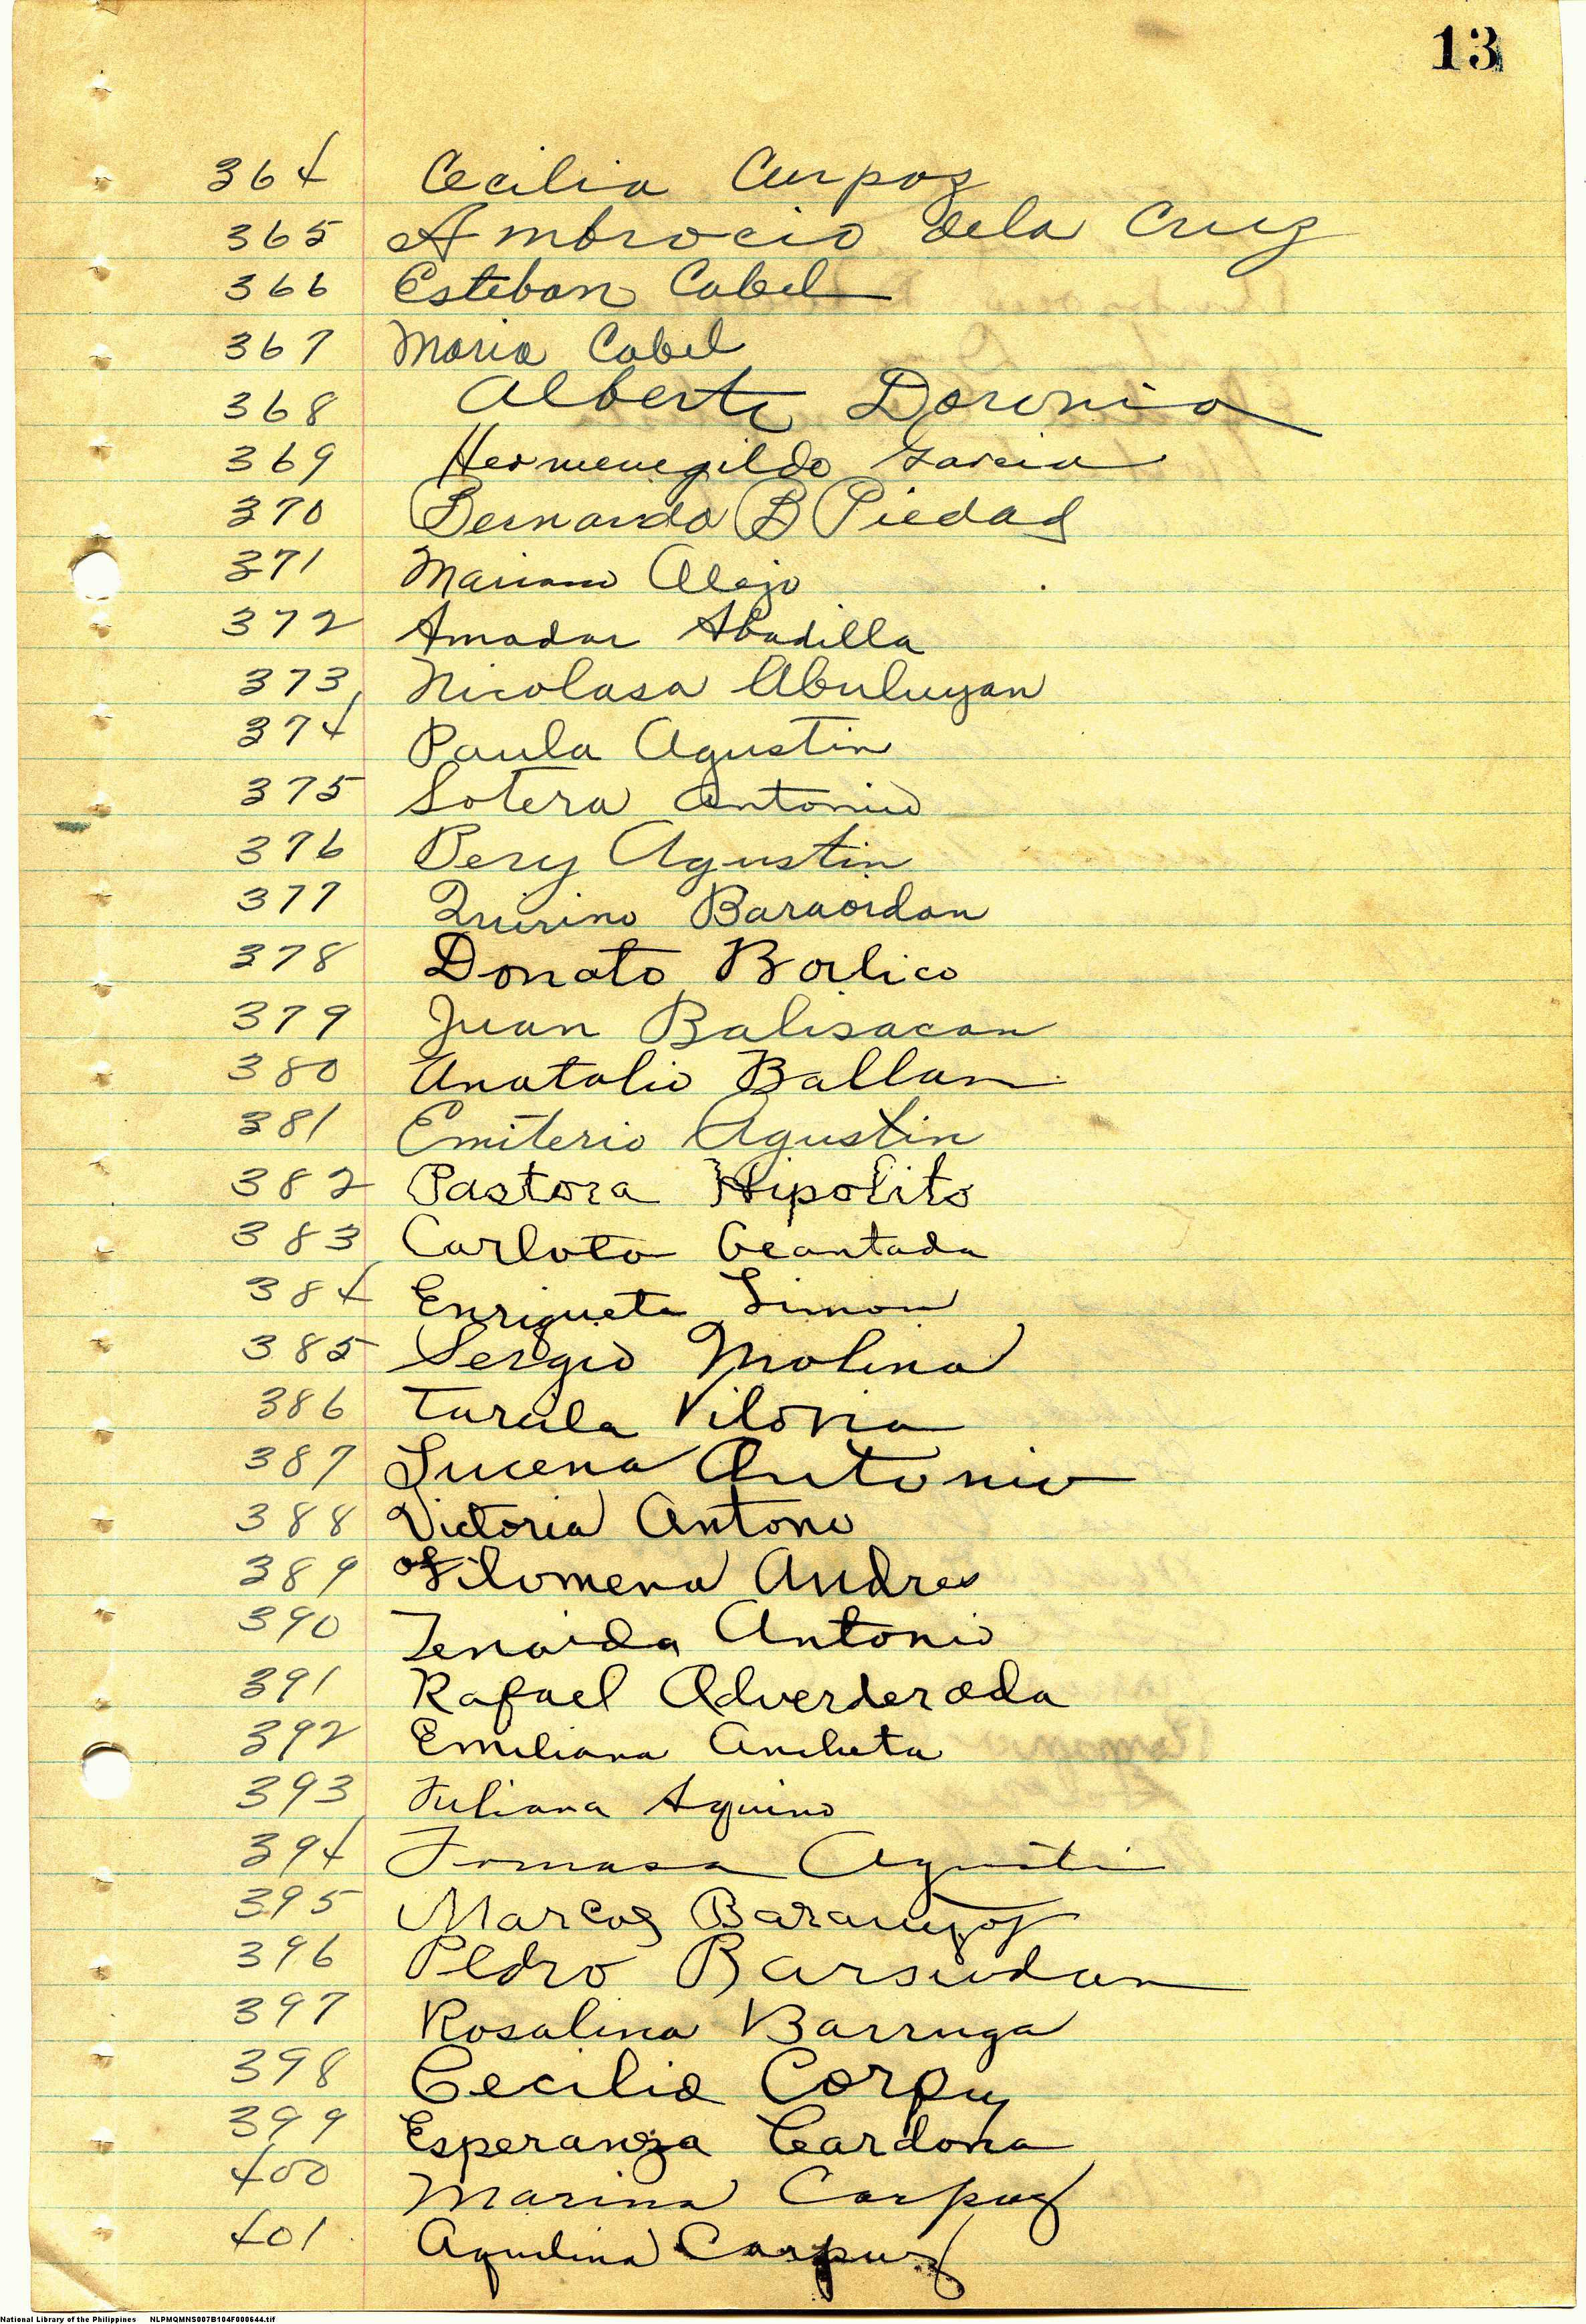 13
364 Cecilia Curpoz
365 Ambrocio dela Cruz
366 Esteban Cabel
367 Maria Cabel
368 Alberto Doronio
369 Hermenegildo Garcia
370 Bernardo B Piedad
371 Mariano Alejo
372 Amador Abadilla
373 Nicolasa Abuluyan
374 Paula Agustin
375 Sotera Antonio
376 Pery Agustin
377 Quirino Baraoidan
378 Donato Borlico
379 Juan Balisacan
380 Anatalio Ballan
381 Emiterio Agustin
382 Pastora Hipolito
383 Carlota
384 Enriqueta Simon
385 Sergio Molina
386 Tarcila Viloria
387 Lucena Antonio
388 Victoria Antono
389 Filomena Andres
390 Zenaida Antonio
391 Rafael Adverderada
392 Emiliana Ancheta
393 Juliana Aquino
394 Tomasa Agusti
395 Marcos
396 Pedro
397 Rosalina Barruga
398 Cecilia Corpuz
399 Esperanza Cardona
400 Marina Corpuz
401 Aquilina Corpuz
National Library of the Philippines NLPMQMNS007B104F000644.tif